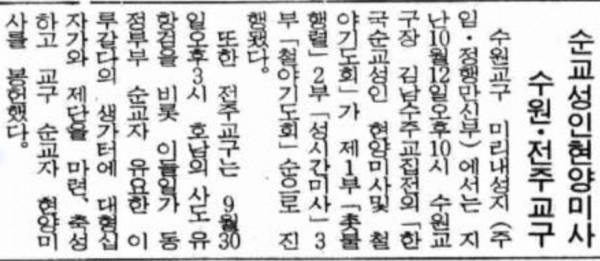 순교성인현양미사
수원·전주교구
수원교구 미리내성지 (주
임·정행만신부)에서는 지
난10월12일오후10시 수원교
구장 김남수주교집전의 「한
국순교성인 현양미사및 철
야기도회」가 제1부「촛불
행렬」2부「성시간미사」3
부「철야기도회」순으로 진
행됐다.
또한 전주교구는 9월30
일오후3시 호남의 사도 유
항검을 비롯 이들일가 동
정부부 순교자 유요한 이
루갈다의 생가터에 대형십
자가와 제단을 마련, 축성
하고 교구 순교자 현양미
사를 봉헌했다.